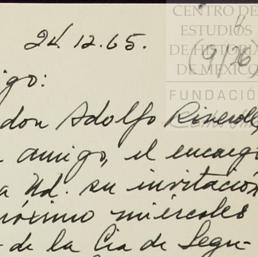 CENTRO DE
ESTUDIOS
DE HISTORIA
DE MÉXICO
FUNDACIÓN
24.12.65.
(9/26)
igo:
don Adolfo Riveroll,
amigo, el encarg
a Ud. su invitación
próximo miércoles
de la Cia de Segu-